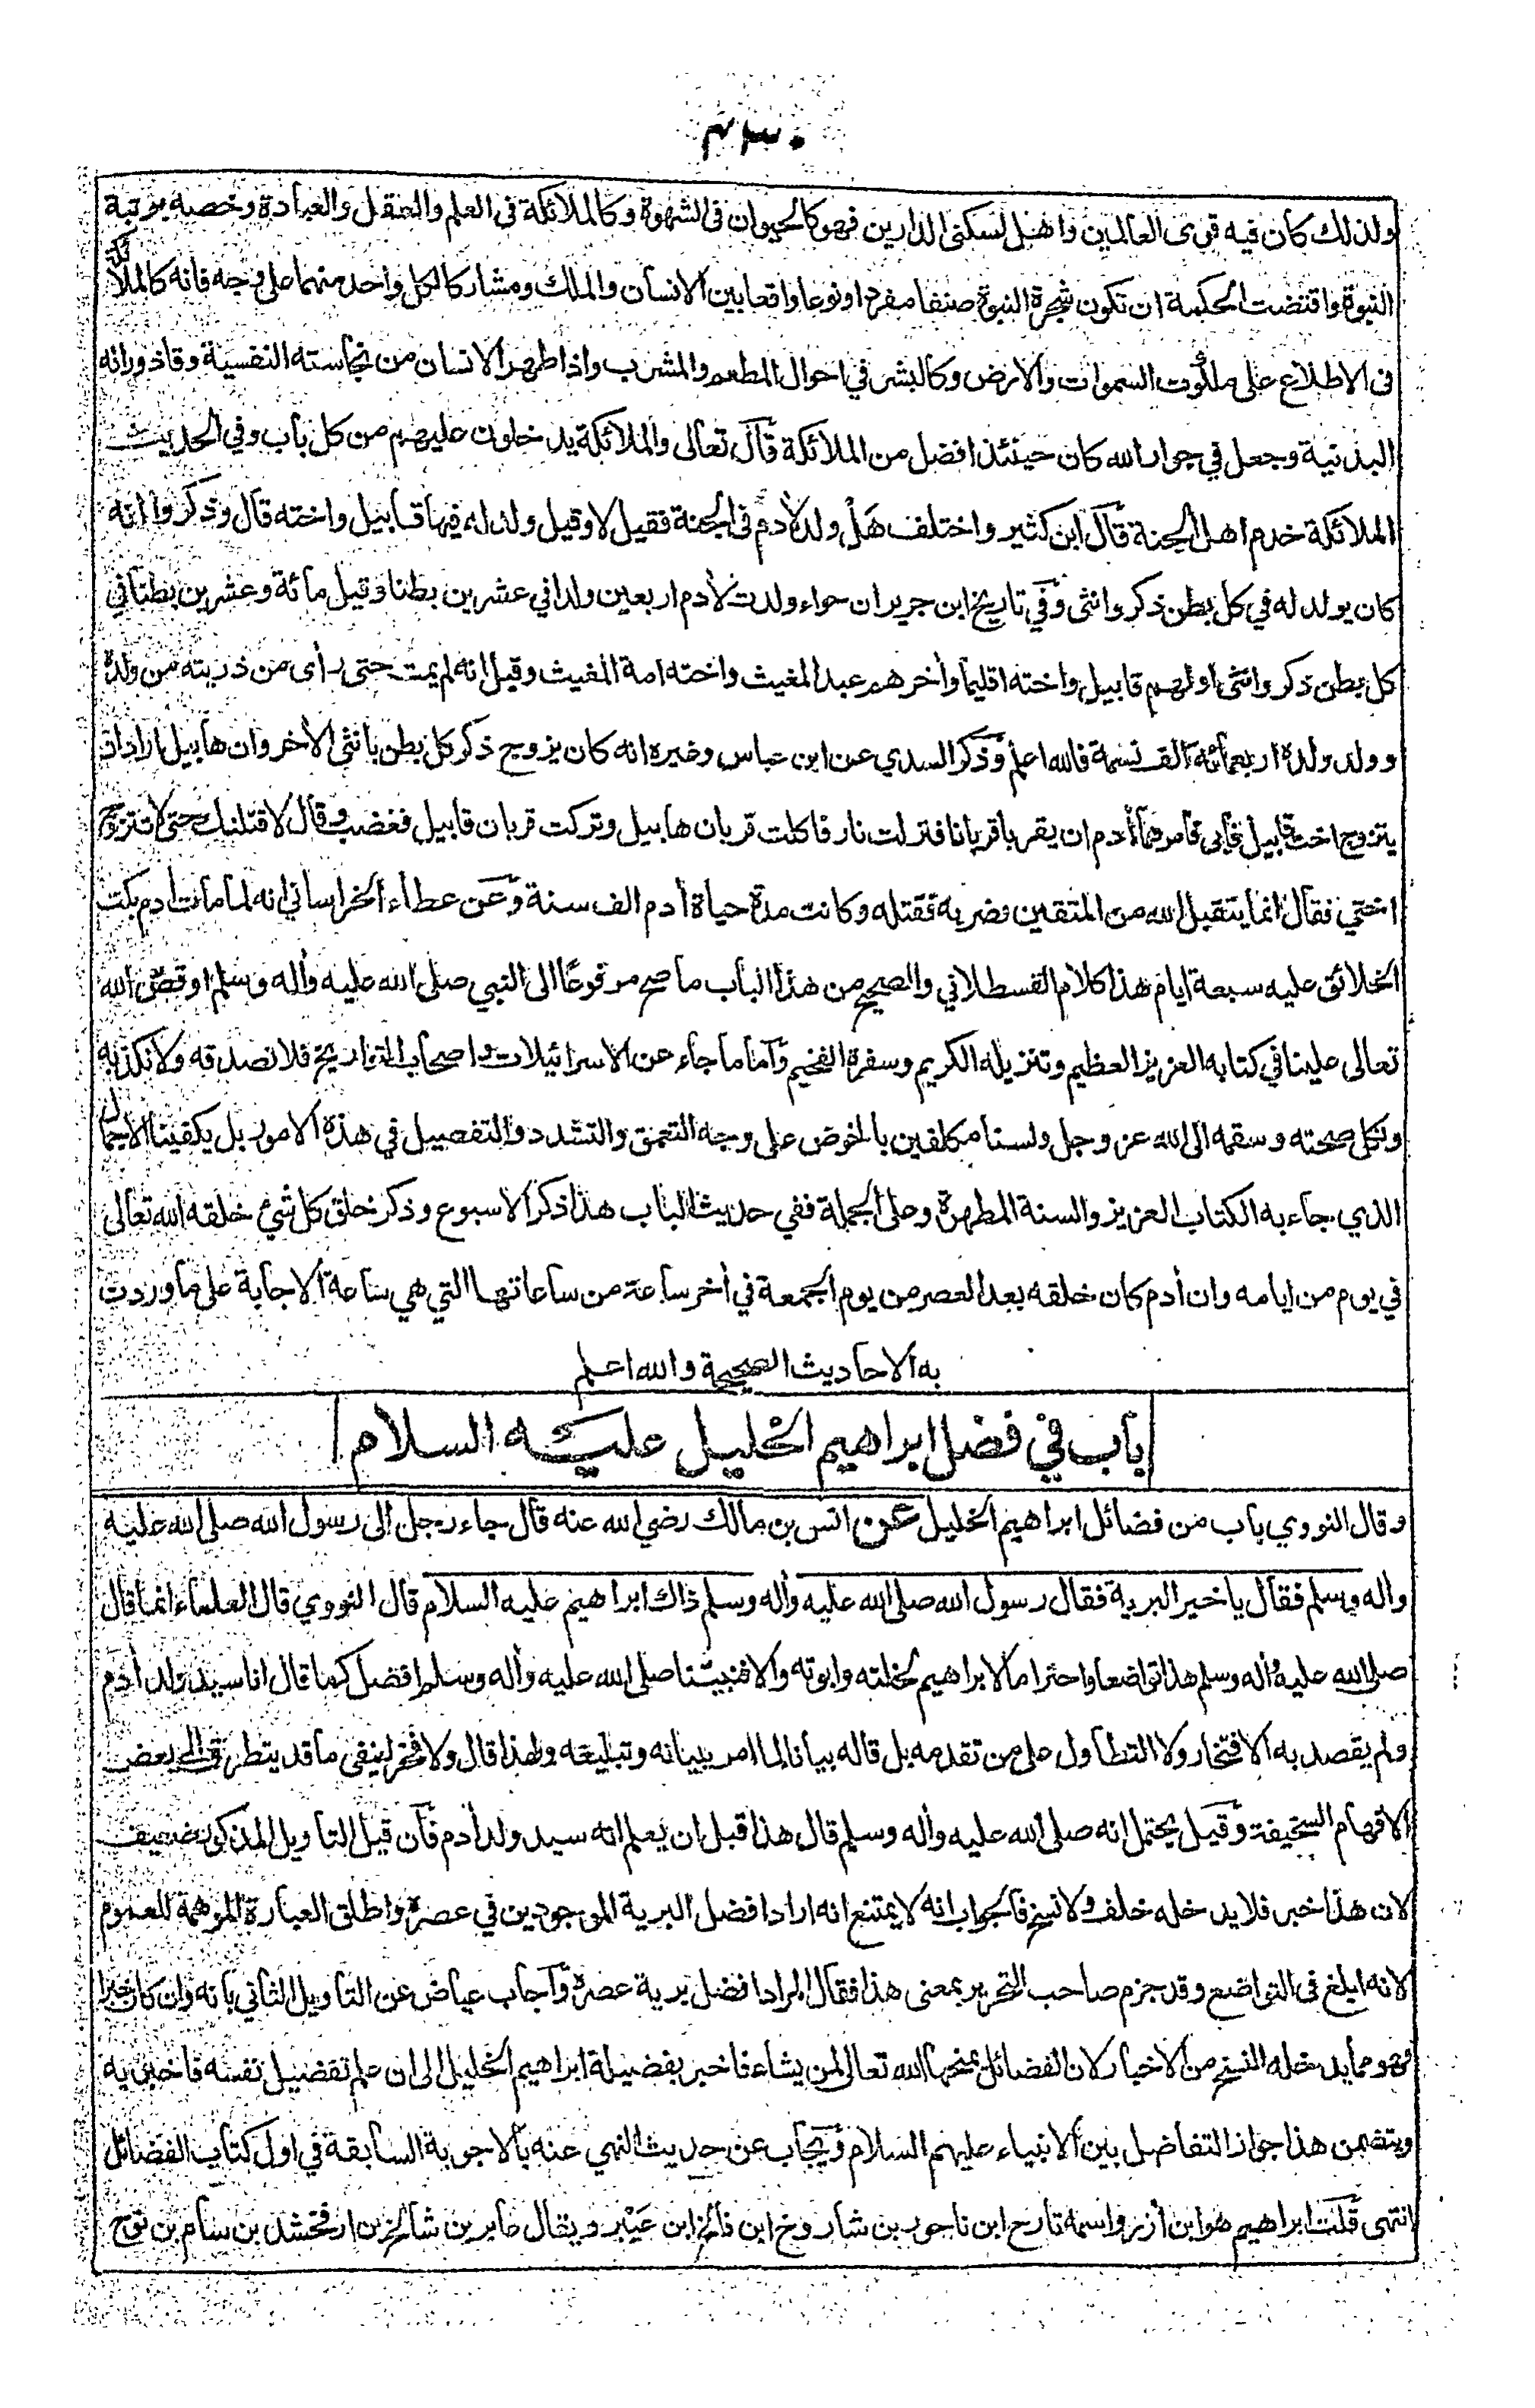 ٤٣٠
ولذلك كان فيه قوى العالمين واهل لسكنى الدارين فهو كالحيوان فى الشهوة وكالملائكة فى العلم والعقل والعبادة وخصه برتبة
النبوة واقتضت الحكمة ان تكون شجرة النبوة صنفا مفردا ونوعا واقعا بين الانسان والملك ومشاركا لكل واحد منهما على وجه فانه كالملائكة
فى الاطلاع على ملكوت السموات والارض وكالبشر في احوال المطعم والمشرب واذا طهر الانسان من نجاسته النفسية وقاذوراته
البدنية وجعل في جوار الله كان حينئذ افضل من الملائكة قال تعالى والملائكة يدخلون عليهم من كل باب وفي الحديث
الملائكة خدم اهل الجنة قال ابن كثير واختلف هل ولد لأدم فى الجنة فقيل لا وقيل ولد له فيها قابيل واخته قال وذكروا انه
كان يولد له في كل بطن ذكر وانثى وفي تاريخ ابن جرير ان حواء ولدت لأدم اربعين ولدا في عشرين بطنا وقيل مائة وعشرين بطنا في
كل بطن ذكر وانثى اولهم قابيل واخته اقليما وأخرهم عبد المغيث واخته امة المغيث وقيل انه لم يمت حتى رأى من ذريته من ولده
وولد ولده اربعمائة الف نسمة فالله اعلم وذكر السدي عن ابن عباس وغيره انه كان يزوج ذكر كل بطن بانثى الأخر وان هابيل اراد ان
يتزوج اخت قابيل فابى فامرهما أدم ان يقربا قربانا فنزلت نار فاكلت قربان هابيل وتركت قربان قابيل فغضب وقال لاقتلنك حتى لا تتزوج
اختي فقال انما يتقبل الله من المتقين وضربه فقتله وكانت مدة حياة أدم الف سنة وعن عطاء الخراساني انه لما مات أدم بكت
الخلائق عليه سبعة ايام هذا كلام القسطلاني والصحيح من هذا الباب ما صح مرفوعًا الى النبي صلى الله عليه وأله وسلم او قص الله
تعالى علينا في كتابه العزيز العظيم وتنزيله الكريم وسفره الفخيم وأما ما جاء عن الاسرائيلات واصحاب التواريخ فلا نصدقه ولا نكذبه
ونكل صحته وسقمه الى الله عز وجل ولسنا مكلفين بالخوض على وجه التعمق والتشدد والتفصيل في هذه الامور بل يكفينا الاجمال
الذي جاء به الكتاب العزيز والسنة المطهرة وعلى الجملة ففي حديث الباب هذا ذكر الاسبوع وذكر خلق كل شئ خلقه الله تعالى
في يوم من ايامه وان أدم كان خلقه بعد العصر من يوم الجمعة في أخر ساعة من ساعاتها التي هي ساعة الاجابة على ما وردت
به الاحاديث الصحيحة والله اعلم
باب في فضل ابراهيم الخليل عليه السلام
وقال النووي باب من فضائل ابراهيم الخليل عن انس بن مالك رضي الله عنه قال جاء رجل الى رسول الله صلى الله عليه
واله وسلم فقال يا خير البرية فقال رسول الله صلى الله عليه وأله وسلم ذاك ابراهيم عليه السلام قال النووي قال العلماء انما قال
صلى الله عليه وأله وسلم هذا تواضعا واحتراما لابراهيم لخلته وابوته والا فنبينا صلى الله عليه وأله وسلم افضل كما قال انا سيد ولد أدم
ولم يقصد به الافتخار ولا التطاول على من تقدمه بل قاله بيانا لما امر ببيانه وتبليغه ولهذا قال ولا فخر لينفى ما قد يتطرق الى بعض
الافهام السخيفة وقيل يحتمل انه صلى الله عليه وأله وسلم قال هذا قبل ان يعلم انه سيد ولد أدم فان قيل التاويل المذكور ضعيف
لان هذا خبر فلا يدخله خلف ولا نسخ فالجواب انه لا يمتنع انه اراد افضل البرية الموجودين في عصره واطلق العبارة الموهمة للعموم
لانه ابلغ فى التواضع وقد جزم صاحب التحرير بمعنى هذا فقال المراد افضل برية عصره وأجاب عياض عن التأويل الثاني بانه وان كان خبرا
فهو مما يدخله النسخ من الاخبار لان الفضائل يمنحها الله تعالى لمن يشاء فاخبر بفضيلة ابراهيم الخليل الى ان علم تفضيل نفسه فاخبر به
ويتضمن هذا جواز التفاضل بين الانبياء عليهم السلام ويجاب عن حديث النهي عنه بالاجوبة السابقة في اول كتاب الفضائل
انتهى قلت ابراهيم هو ابن أزر واسمه تارح ابن ناحور بن شاروخ ابن فالخ ابن عيبر ويقال عابر بن شالخ بن ارفخشد بن سام بن نوح